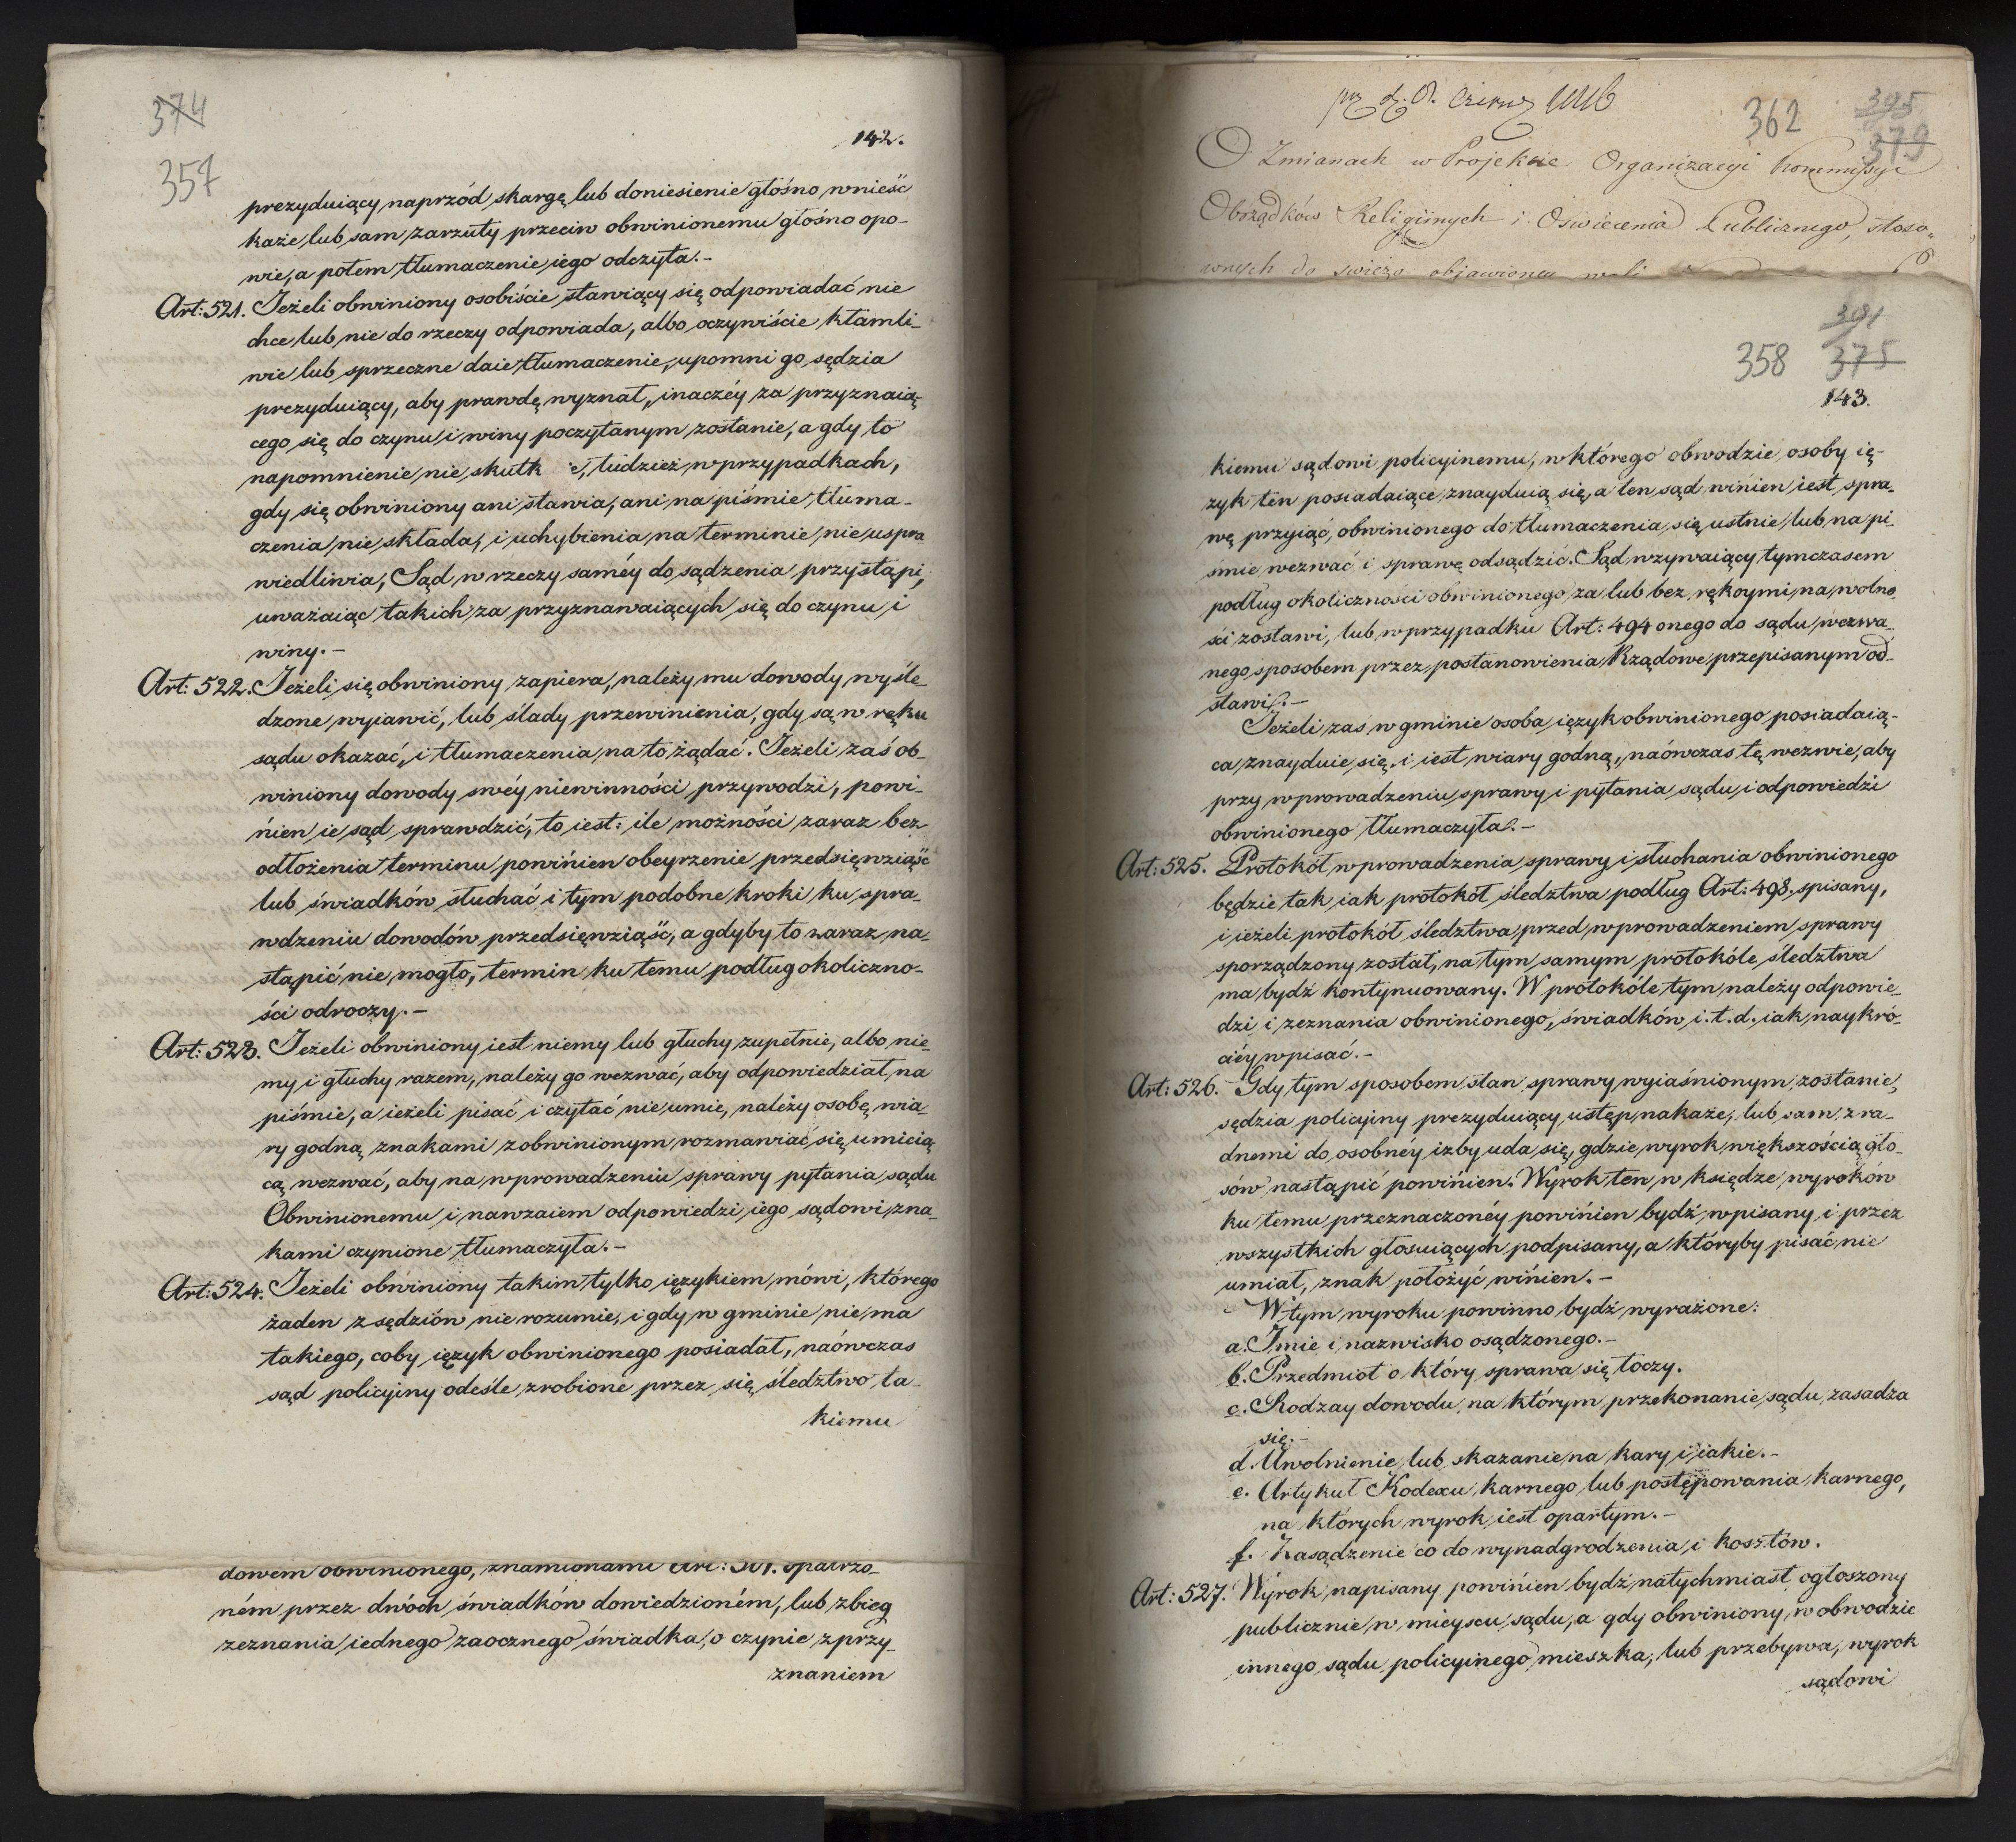 374
357
142.
prezyduiący naprzód skargę lub doniesienie głośno wnieść
każe lub sam zarzuty przeciw obwinionemu głośno opo-
wie, a potem tłumaczenie iego odczyta.-
Art: 521. Jeżeli obwiniony osobiście stawiący się odpowiadać nie
chce lub nie do rzeczy odpowiada, albo oczywiście kłamli-
wie lub sprzeczne daie tłumaczenie, upomni go sędzia
prezyduiący, aby prawdę wyznał, inaczéy za przyznaią-
cego się do czynu i winy poczytanym zostanie, a gdy to
napomnienie nie skutk e, tudzież w przypadkach,
gdy się obwiniony ani stawia, ani na piśmie tłuma-
czenia nie składa, i uchybienia na terminie nie uspra
wiedliwia, Sąd w rzeczy saméy do sądzenia przystąpi,
uważaiąc takich za przyznawaiących się do czynu i
winy.-
Art: 522. Jeżeli się obwiniony zapiera, należy mu dowody wyśle-
dzone wyiawić, lub ślady przewinienia, gdy są w ręku
sądu okazać, i tłumaczenia na to żądać. Jeżeli zaś ob-
winiony dowody swéy niewinności przywodzi, powi-
nien ie sąd sprawdzić, to iest: ile możności zaraz bez
odłożenia terminu powinien obeyrzenie przedsięwziąść
lub świadków słuchać i tym podobne kroki ku spra-
wdzeniu dowodów przedsięwziąść, a gdyby to zaraz na-
stąpić nie mogło, termin ku temu podług okoliczno-
ści odroczy.-
Art: 523. Jeżeli obwiniony iest niemy lub głuchy zupełnie, albo nie-
my i głuchy razem, należy go wezwać, aby odpowiedział na
piśmie, a ieżeli pisać i czytać nie umie, należy osobę wia-
ry godną znakami z obwinionym rozmawiać się umieią
cą wezwać, aby na wprowadzeniu sprawy pytania sądu
Obwinionemu i nawzaiem odpowiedzi iego sądowi zna-
kami czynione tłumaczyła.-
Art: 524. Jeżeli obwiniony takim tylko ięzykiem mówi, którego
żaden z sędziów nie rozumie, i gdy w gminie nie ma
takiego, coby ięzyk obwinionego posiadał, naówczas
sąd policyiny odeśle zrobione przez się śledztwo ta-
kiemu
dowem obwinionego, znamionami Art: 501. opatrzo-
ném przez dwóch świadków dowiedzioném, lub zbieg
zeznania iednego zaocznego świadka, o czynie z przy-
znaniem
362
395
379
O Zmianach w Projekcie Organizacyi Kommissyi
Obrządków Religiinych i Oswiecenia Publicznego, stoso„
wnych do swieżo objawioney woli
391
358 375
143.
kiemu sądowi policyinemu, w którego obwodzie osoby ię-
zyk ten posiadaiące znayduią się, a ten sąd winien iest spra-
wę przyiąć, obwinionego do tłumaczenia się ustnie lub na pi-
śmie wezwać i sprawę odsądzić. Sąd wzywaiący tymczasem
podług okoliczności obwinionego za lub bez rękoymi na wolno-
ści zostawi, lub w przypadku Art: 494 onego do sądu wezwa-
nego sposobem przez postanowienia Rządowe przepisanym od-
stawi.-
Jeżeli zas w gminie osoba ięzyk obwinionego posiadaią-
ca znayduie się, i iest wiary godną, naówczas tę wezwie, aby
przy wprowadzeniu sprawy i pytania sądu i odpowiedzi
obwinionego tłumaczyła.-
Art: 525. Protokół wprowadzenia sprawy i słuchania obwinionego
będzie tak iak protokół śledztwa podług Art: 498. spisany,
i ieżeli protokół śledztwa przed wprowadzeniem sprawy
sporządzony został, na tym samym protokóle śledztwa
ma bydź kontynuowany. W protokóle tym należy odpowie-
dzi i zeznania obwinionego, świadków i.t.d. iak naykró-
ciéy wpisać.-
Art: 526. Gdy tym sposobem stan sprawy wyiaśnionym zostanie,
sędzia policyiny prezyduiący ustęp nakaże, lub sam z ra-
dnemi do osobnéy izby uda się, gdzie wyrok większością gło-
sów nastąpić powinien. Wyrok ten w księdze wyroków
ku temu przeznaczonéy powinien bydź wpisany i przez
wszystkich głosuiących podpisany, a któryby pisać nie
umiał, znak położyć winien.-
W tym wyroku powinno bydź wyrażone:
a. Imie i nazwisko osądzonego.-
b. Przedmiot o który sprawa się toczy.
c. Rodzay dowodu, na którym przekonanie sądu zasadza
się.-
d. Uwolnienie lub skazanie na kary i iakie.-
e. Artykuł Kodexu karnego lub postępowania karnego,
na których wyrok iest opartym.-
f. Zasądzenie co do wynadgrodzenia i kosztów.
Art: 527. Wyrok napisany powinien bydź natychmiast ogłoszony
publicznie w mieyscu sądu, a gdy obwiniony w obwodzie
innego sądu policyinego mieszka, lub przebywa, wyrok
sądowi